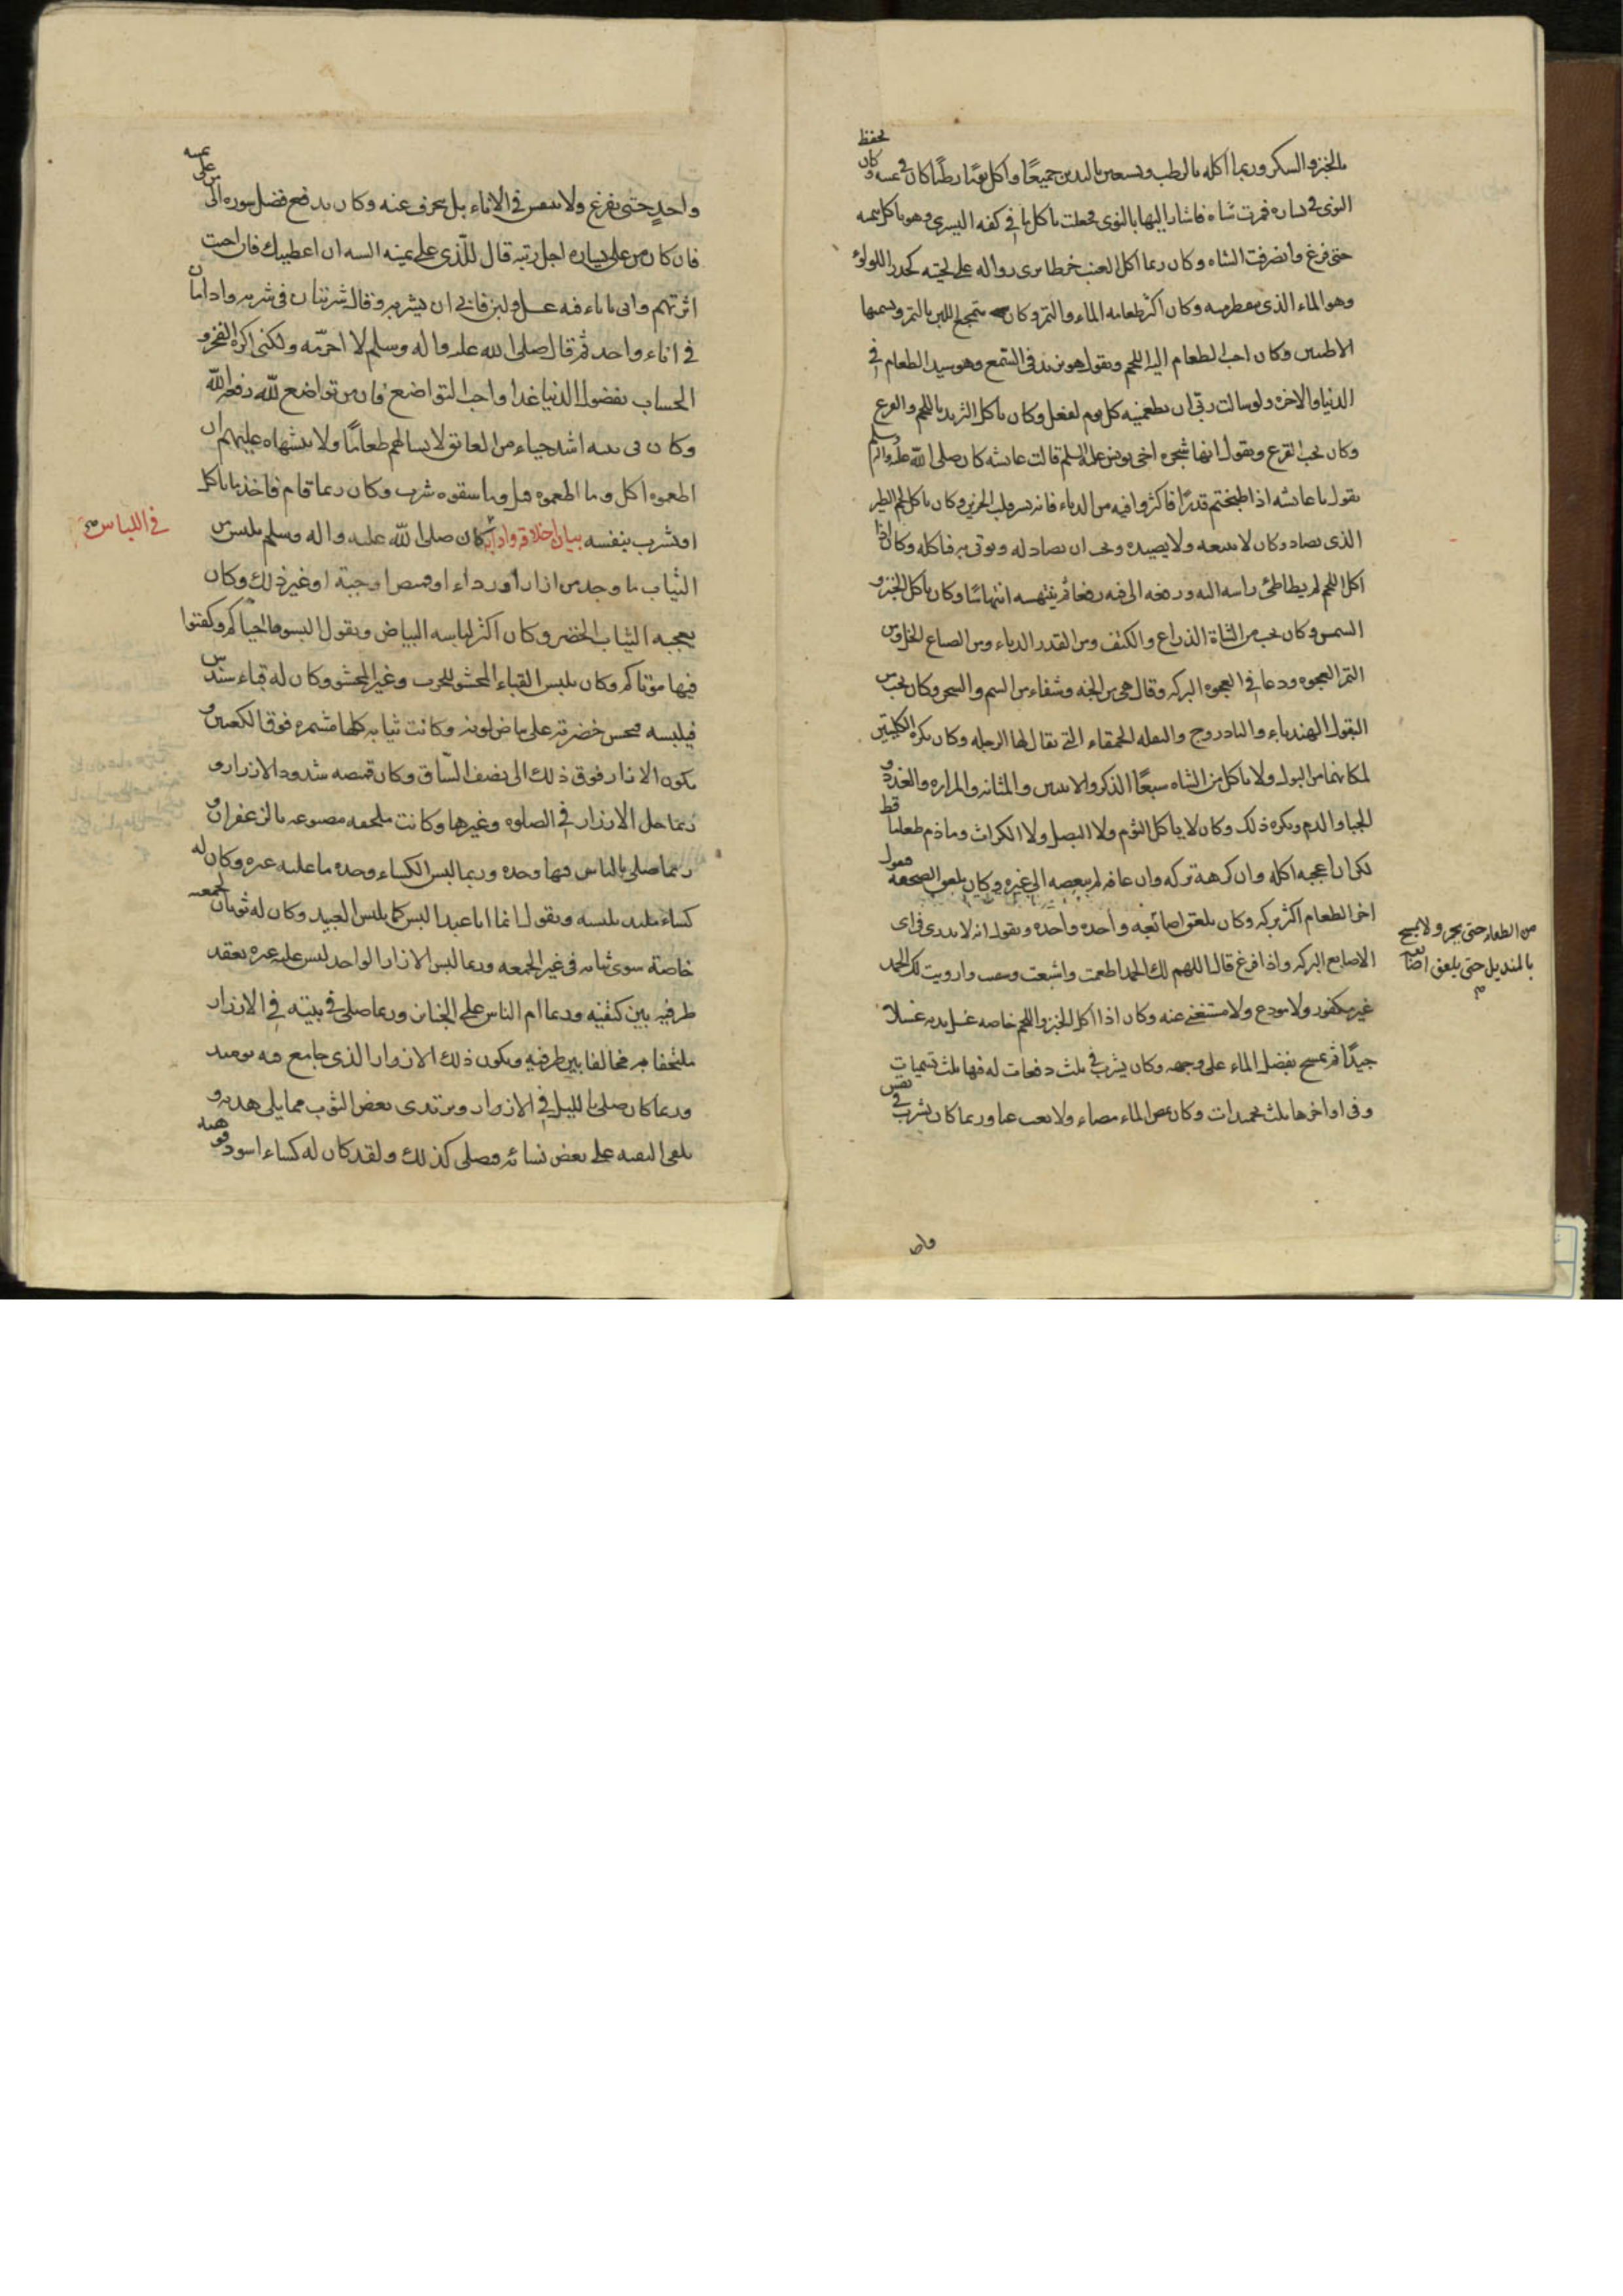 بالخبز والسكر وربما اكله بالرطب ويستعين باليدين جميعًا واكل يومًا رطبًا كان في يمينه وكان يحفظ
النوى في يساره فمرت شاة فاشار اليها بالنوى فجعلت تاكل ما في كفه اليسرى وهو ياكل بيمينه
حتى فرغ وانصرفت الشاه وكان ربما اكل العنب خرطا يرى رواله على لحيته كحدر اللولؤ
وهو الماء الذي يقطر منه وكان اكثر طعامه الماء والتمر وكان يتمجع اللبن بالتمر ويسميها
الاطيبين وكان احب الطعام اليه اللحم ويقول هو يزيد في السمع وهو سيد الطعام في
الدنيا والاخره ولو سالت ربي ان يطعمنيه كل يوم لفعل وكان ياكل الثريد باللحم والقرع
وكان يحب القرع ويقول انها شجره اخي يونس عليه السلم قالت عائشه كان صلى الله عليه واله وسلم
يقول يا عائشه اذا طبختم قدرًا فاكثروا فيه من الدباء فانه يسر قلب الحزين وكان ياكل لحم الطير
الذي يصاد وكان لا يتبعه ولا يصيده ويحب ان يصاد له ويوتى به فياكله وكان اذا
اكل اللحم لم يطاطئ راسه اليه ورفعه الى فيه رفعا ثم ينتهسه انتهاسًا وكان ياكل الخبز و
السمن وكان يحب من الشاة الذراع والكتف ومن القدر الدباء ومن الصباغ الخل ومن
التمر العجوه ودعا في العجوه البركه وقال هي من الجنه وشفاء من السم والسحر وكان يحب من
البقول الهندباء والباذروج والبقله الحمقاء التي يقال لها الرجله وكان يكره الكليتين
لمكانهما من البول ولا ياكل من الشاه سبعًا الذكر والانثيين والمثانه والمراره والغدد و
الحيا والدم ويكره ذلك وكان لا ياكل الثوم ولا البصل ولا الكراث وما ذم طعاما قط
لكن ان اعجبه اكله وان كرهه تركه وان عافه لم يبغضه الى غيره وكان يلعق الصحفه ويقول
اخر الطعام اكثر بركه وكان يلعق اصابعه واحده واحده ويقول انه لا يدرى في اى
الاصابع البركه واذا فرغ قال اللهم لك الحمد اطعمت واشبعت وسقيت وارويت لك الحمد
غير مكفور ولا مودع ولا مستغنى عنه وكان اذا اكل الخبز واللحم خاصه غسل يديه غسلا
جيدًا ثم يمسح بفضل الماء على وجهه وكان يشرب في ثلث دفعات له فيها ثلث تسميات
وفي اواخرها ثلث تحميدات وكان يمص الماء مصا ولا يعب عبا وربما كان يشرب في نفس
من الطعام حتى يحمر ولا يمسح
بالمنديل حتى يلعق اصابعه
واحد
واحدٍ حتى يفرغ ولا يتنفس في الاناء بل ينحرف عنه وكان يدفع فضل سوره الى من على يمينه
فان كان من على يساره اجل رتبه قال للذي على يمينه السنه ان اعطيك فان احببت
اثرتهم واتي باناء فيه عسل ولبن فابى ان يشربه وقال شربتان في شربه وادامان
في اناء واحد ثم قال صلى الله عليه واله وسلم لا احرمه ولكني اكره الفخر و
الحساب بفضول الدنيا غدا واحب التواضع فان من تواضع لله رفعه الله
وكان في بيته اشد حياء من العاتق لا يسالهم طعامًا ولا يتشهاه عليهم ان
اطعموه اكل وما اطعموه قبل وما سقوه شرب وكان ربما قام فاخذ ما ياكل
او يشرب بنفسه بيان اخلاقه وآدابه كان صلى الله عليه واله وسلم يلبس من
في اللباس صح
الثياب ما وجد من ازار او رداء او قميص او جبة او غير ذلك وكان
يعجبه الثياب الخضر وكان اكثر لباسه البياض ويقول البسوها احياكم وكفنوا
فيها موتاكم وكان يلبس القباء المحشو للحرب وغير المحشو وكان له قباء سندس
فيلبسه فتحسن خضرته على بياض لونه وكانت ثيابه كلها مشمره فوق الكعبين و
يكون الازار فوق ذلك الى نصف الساق وكان قميصه مشدود الازرار و
ربما حل الازرار في الصلوه وغيرها وكانت له ملحفه مصبوغه بالزعفران و
ربما صلى بالناس فيها وحده وربما لبس الكساء وحده ما عليه غيره وكان له
كساء ملبد يلبسه ويقول انما انا عبد البس كما يلبس العبيد وكان له ثوبان لجمعته
خاصة سوى ثيابه في غير الجمعه وربما لبس الازار الواحد ليس عليه غيره يعقد
طرفيه بين كتفيه وربما ام الناس على الجنائز وربما صلى في بيته في الازار
ملتحفا به مخالفا بين طرفيه ويكون ذلك الازار الذي جامع فيه يومئذ
وربما كان صلى بالليل في الازار ويرتدى ببعض الثوب مما يلى هدبه و
يلقى البقيه على بعض نسائه فيصلى كذلك ولقد كان له كساء اسود فوهبه